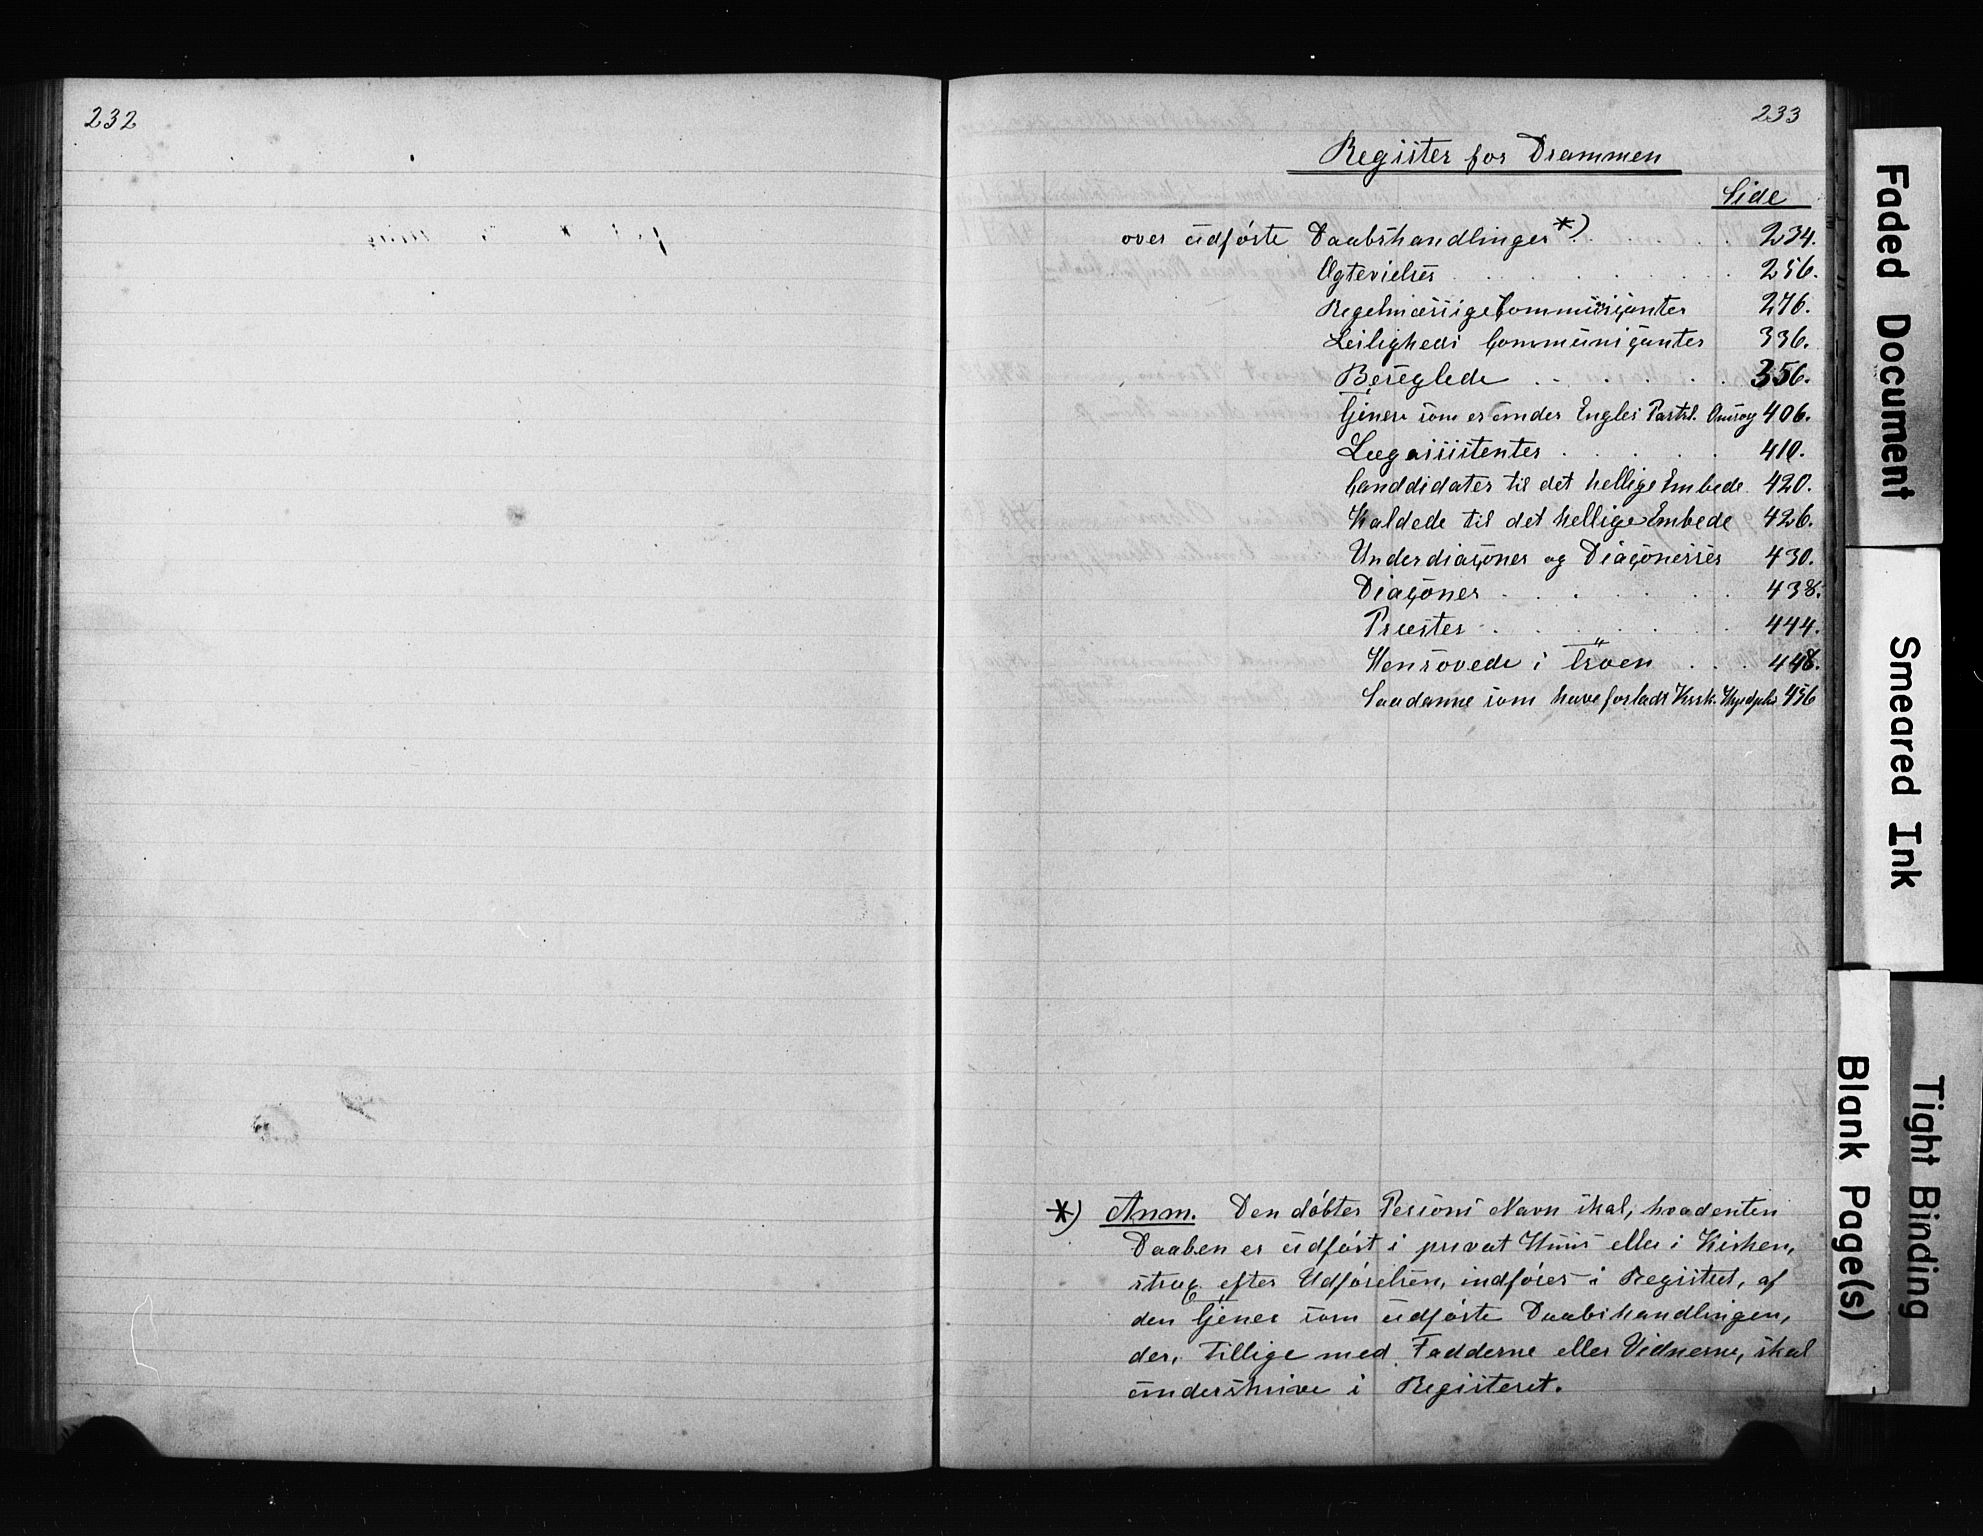 232
233
Register for Drammen
Side
over udførte Daabshandlinger *) . . . . . 234.
Ægtevielser . . . . . . . 256.
Regelmæssige Communiçanter 276.
Leiligheds Communiçanter 336.
Beseglede . . . . . . 356.
Tjenere som er under Engles Partsk. Omsorg 406.
Lægassistenter . . . . . 410.
Canddidater til det hellige Embede. 420.
Kaldede til det hellige Embede 426.
Underdiaçoner og Diaçonesser 430.
Diaçoner . . . . . 438.
Præster . . . . . 444.
Hensovede i Troen . . . 448.
Saadanne som have forladt Kirk. 456
*) Anm. Den døbtes Persons Navn skal, hvadenten
Daaben er udført i privat Huus eller i Kirken,
strax efter Udførelsen, indføres i Registret, af
den Tjener som udførte Daabshandlingen,
der, tillige med Fadderne eller Vidnerne, skal
underskrive i Registeret.
Faded Document
Smeared Ink
Tight Binding
Blank Page(s)